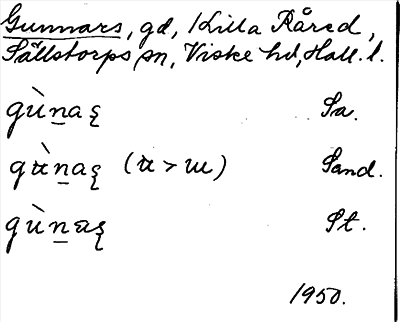 Gunnars, gd, Lilla Råred,
Sällstorps sn, Viske hd, Hall. l.
gù̠nas̨ Sa.
gʉ̀n̠as̨ (ʉ > ɯ) Sand.
gùn̠as̨ St.
1950.